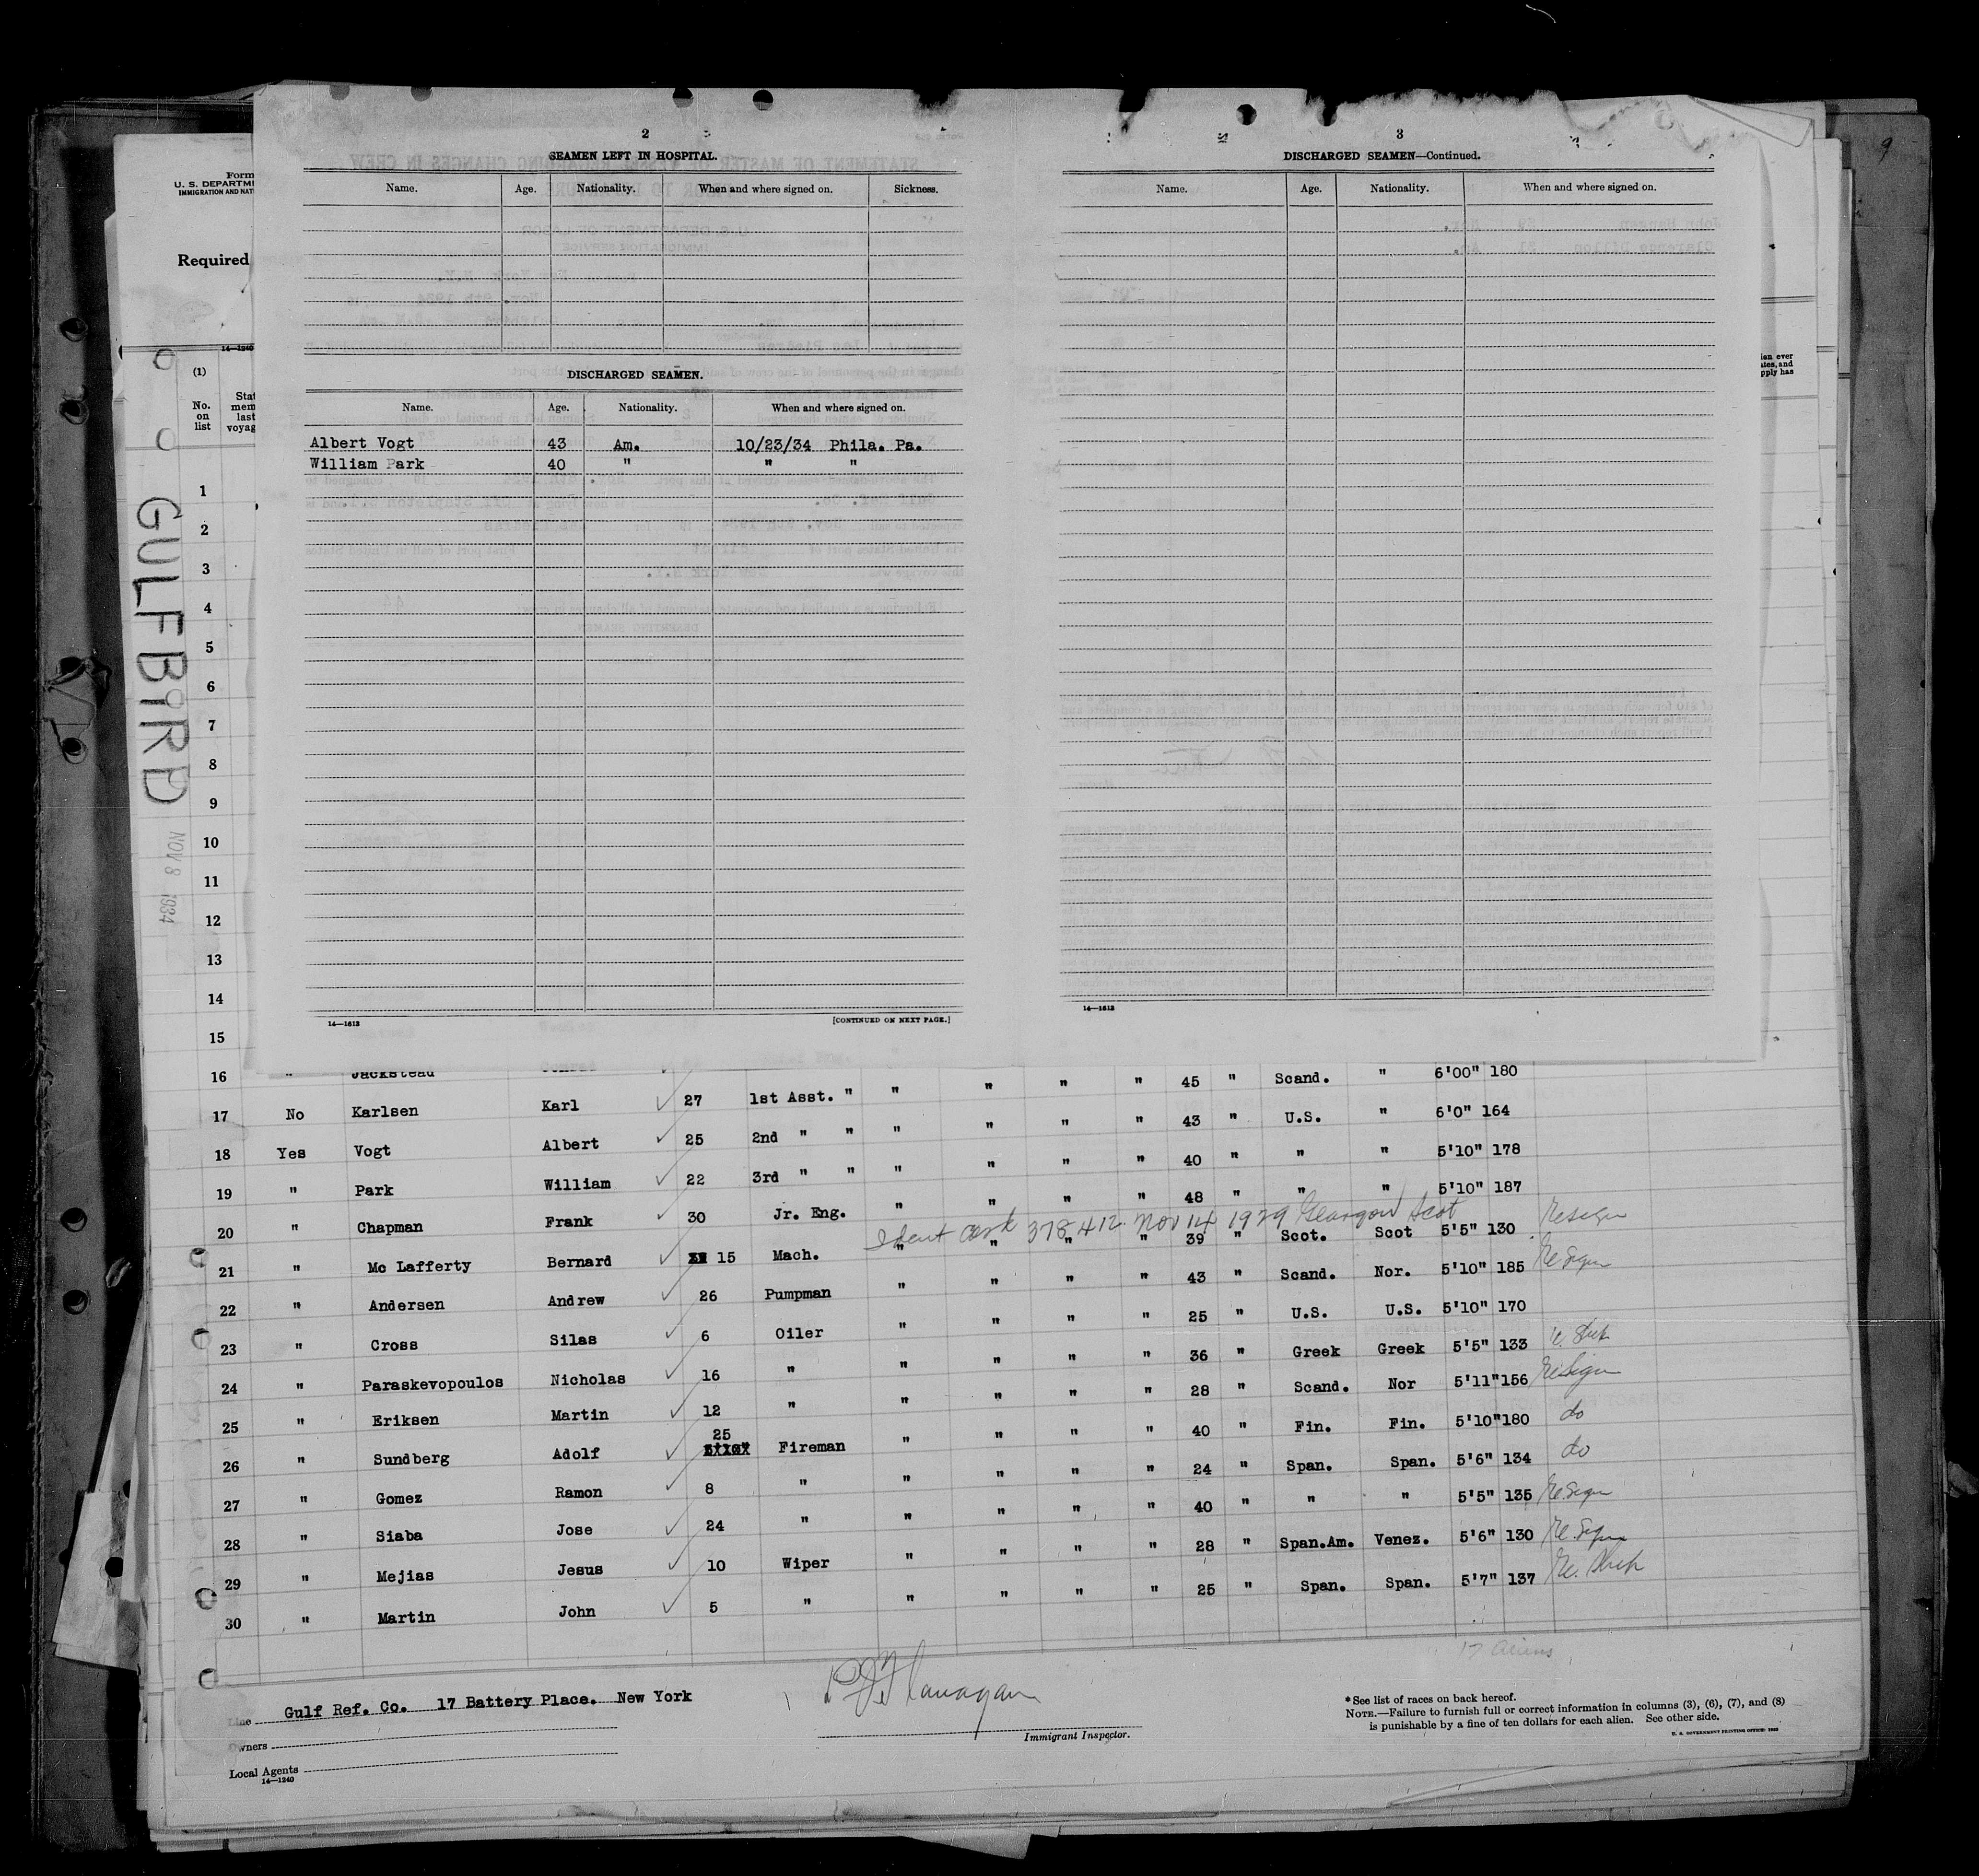 2
SEAMEN LEFT IN HOSPITAL.
Name. Age. Nationality. When and where signed on. Sickness.
DISCHARGED SEAMEN.
Name. Age. Nationality. When and where signed on.
Albert Vogt 43 Am. 10/23/34 Phila. Pa.
William Park 40 " " "
14—1613 [CONTINUED ON NEXT PAGE.]
3
DISCHARGED SEAMEN—Continued.
Name. Age. Nationality. When and where signed on.
14—1613
9
Form
U. S. DEPARTME
IMMIGRATION AND NAT
Required
14—1240
(1)
No. on list
Stat
mem
last
voyag
ien ever
ates, and
pply has
GULFBIRD
NOV 8 1934
1
2
3
4
5
6
7
8
9
10
11
12
13
14
15
16 " Jackstead
" " " " 45 " Scand. " 6'00" 180
17 No Karlsen Karl 27 1st Asst. " " " " " 43 " U.S. " 6'0" 164
18 Yes Vogt Albert 25 2nd " " " " " " 40 " " " 5'10" 178
19 " Park William 22 3rd " " " " " " 48 " " " 5'10" 187
20 " Chapman Frank 30 Jr. Eng. " " " " 39 " Scot. Scot 5'5" 130 Resign
Ident Card 378412 Nov 14 1929 Glasgow Scot
21 " Mc Lafferty Bernard 15 Mach. " " " " 43 " Scand. Nor. 5'10" 185 Resign
22 " Andersen Andrew 26 Pumpman " " " " 25 " U.S. U.S. 5'10" 170
23 " Cross Silas 6 Oiler " " " " 36 " Greek Greek 5'5" 133
24 " Paraskevopoulos Nicholas 16 " " " " " 28 " Scand. Nor 5'11" 156 Resign
25 " Eriksen Martin 12 " " " " " 40 " Fin. Fin. 5'10" 180 do
26 " Sundberg Adolf 25 Fireman " " " " 24 " Span. Span. 5'6" 134 do
27 " Gomez Ramon 8 " " " " " 40 " " " 5'5" 135 Resign
28 " Siaba Jose 24 " " " " " 28 " Span.Am. Venez. 5'6" 130 Resign
29 " Mejias Jesus 10 Wiper " " " " 25 " Span. Span. 5'7" 137
30 " Martin John 5 " " " " "
17 Aliens
Line Gulf Ref. Co. 17 Battery Place. New York
Owners
Local Agents
14—1240
P J Flanagan
Immigrant Inspector.
* See list of races on back hereof.
NOTE.—Failure to furnish full or correct information in columns (3), (6), (7), and (8)
is punishable by a fine of ten dollars for each alien. See other side.
U. S. GOVERNMENT PRINTING OFFICE: 1932